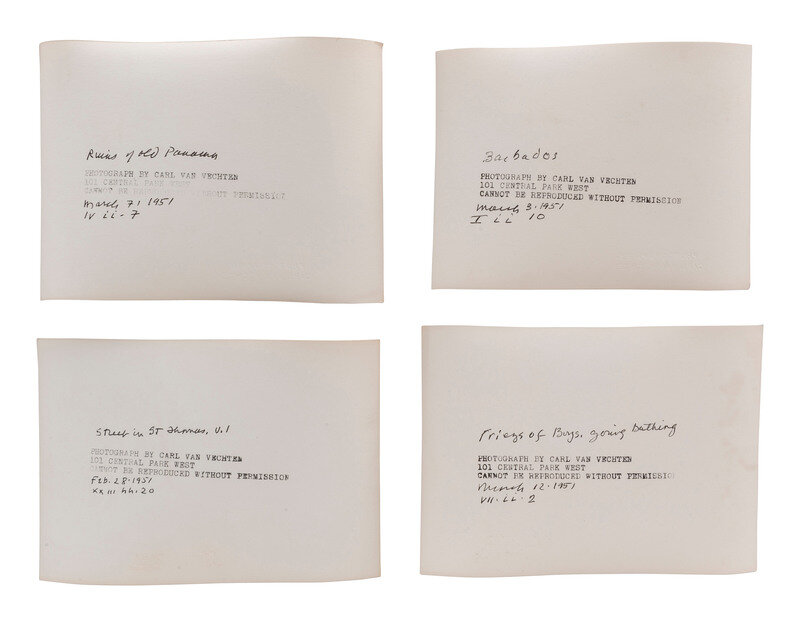 Ruins of old Panama
PHOTOGRAPH BY CARL VAN VECHTEN
101 CENTRAL PARK WEST
CANNOT BE REPRODUCED WITHOUT PERMISSION
March 7, 1951
IV ii - 7
Barbados
PHOTOGRAPH BY CARL VAN VECHTEN
101 CENTRAL PARK WEST
CANNOT BE REPRODUCED WITHOUT PERMISSION
March 3 - 1951
I ii 10
Street in St Thomas, V.I
PHOTOGRAPH BY CARL VAN VECHTEN
101 CENTRAL PARK WEST
CANNOT BE REPRODUCED WITHOUT PERMISSION
Feb. 28 - 1951
XXIII hh. 20
Frieze of Boys, going bathing
PHOTOGRAPH BY CARL VAN VECHTEN
101 CENTRAL PARK WEST
CANNOT BE REPRODUCED WITHOUT PERMISSION
March 12 - 1951
VII - ii - 2